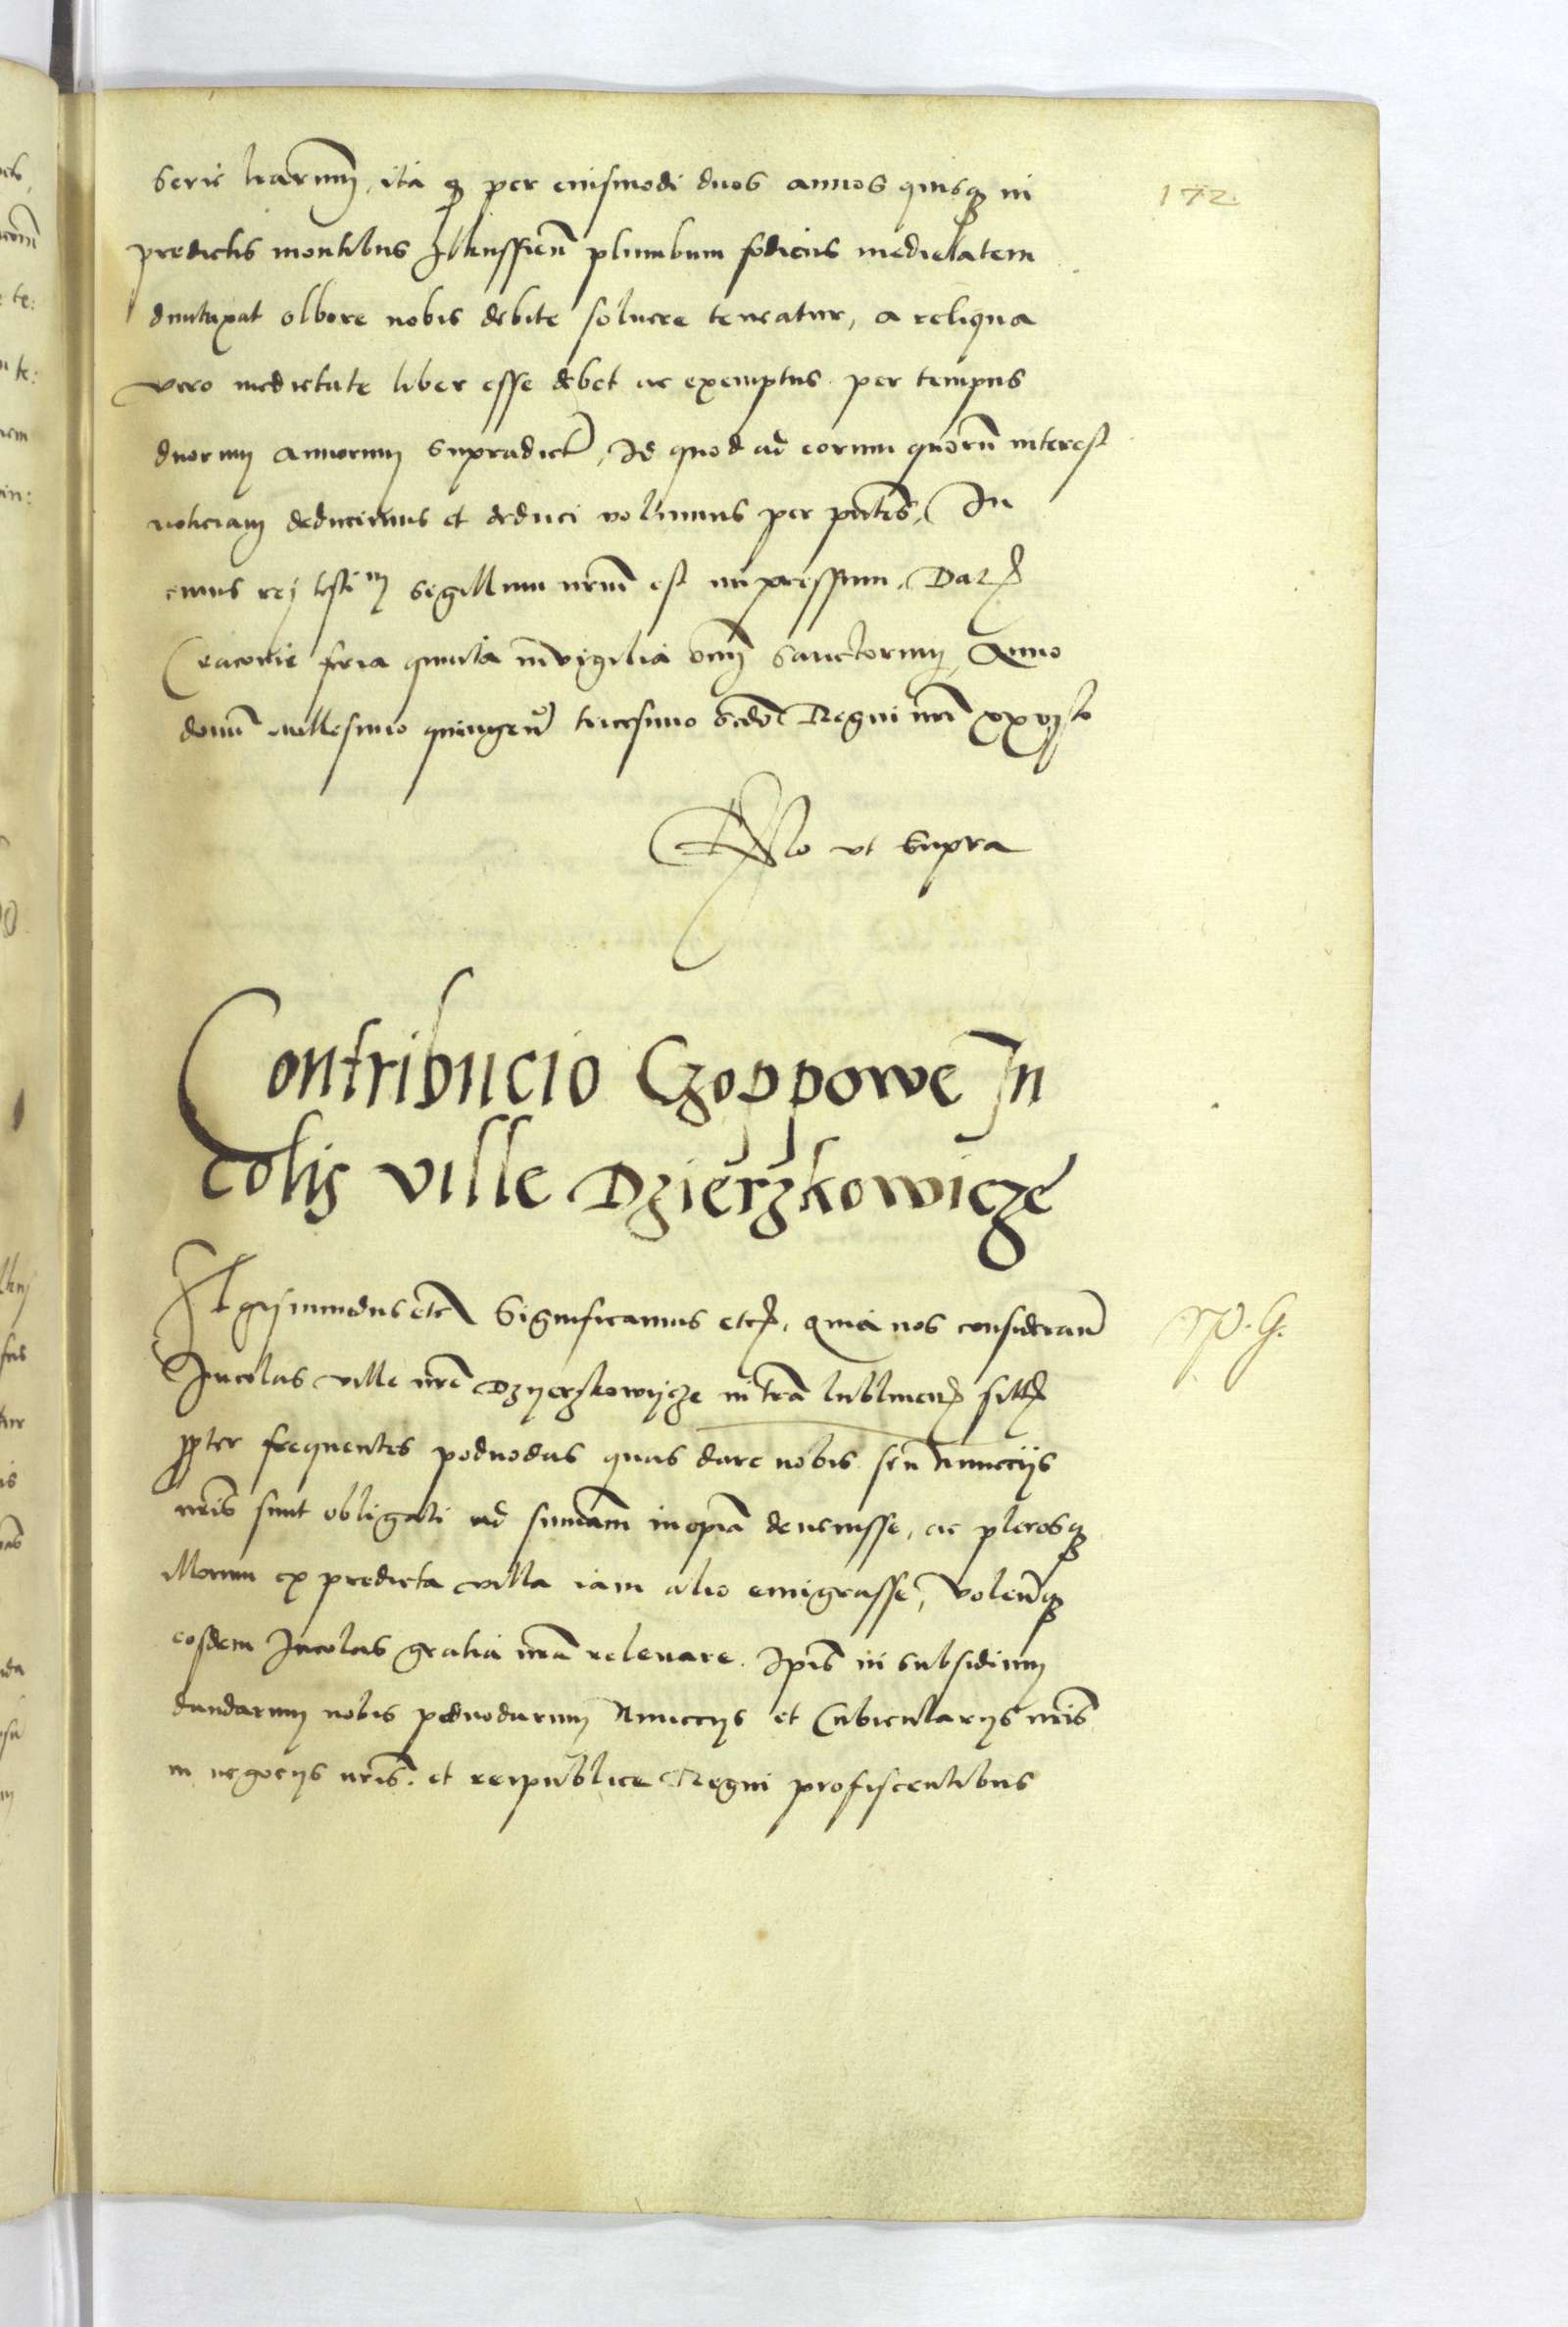 172.
serie harum, ita q per eiusmodi duos annos quisq in
predictis montibus Ilkussien plumbum fodiens medietatem
duntaxat olbore nobis debite soluere teneatur, a reliqua
vero medietate liber esse debet ac exemptus per tempus
duorum annorum supradict, Id quod ad eorum quorũ interest
noticiam deducimus et deduci volumus per pñtes, In
cuius rej testim sigillum nrũm est impressum. Dat
Cracovie feria quinta in vigilia omĩ sanctorum, Anno
domĩ millesimo quingeñ tricesimo scdo Regni nrĩ xxvjto
Rlo ut supra
Contribucio Czoppowe In
colis ville Dzierzkowicze
Sigismundus etc Significamus etc, quia nos consideranͫ
Incolas ville nrẽ Dzyerzkowycze in trã lublineñ sitt
ppter frequentes poduodas quas dare nobis seu Nuncijs
nrĩs sunt obligati ad summam inopiã deuenisse, ac plerosq
illorum ex predicta villa iam alio emigrasse, Volenq
eosdem Incolas gratia nrã releuare. Ipĩs in subsidium
dandarum nobis poduodarum Nuncijs et Cubicularijs nrĩs
in negocijs nrĩs. et reipublice Regni profiscentibus
W. G.